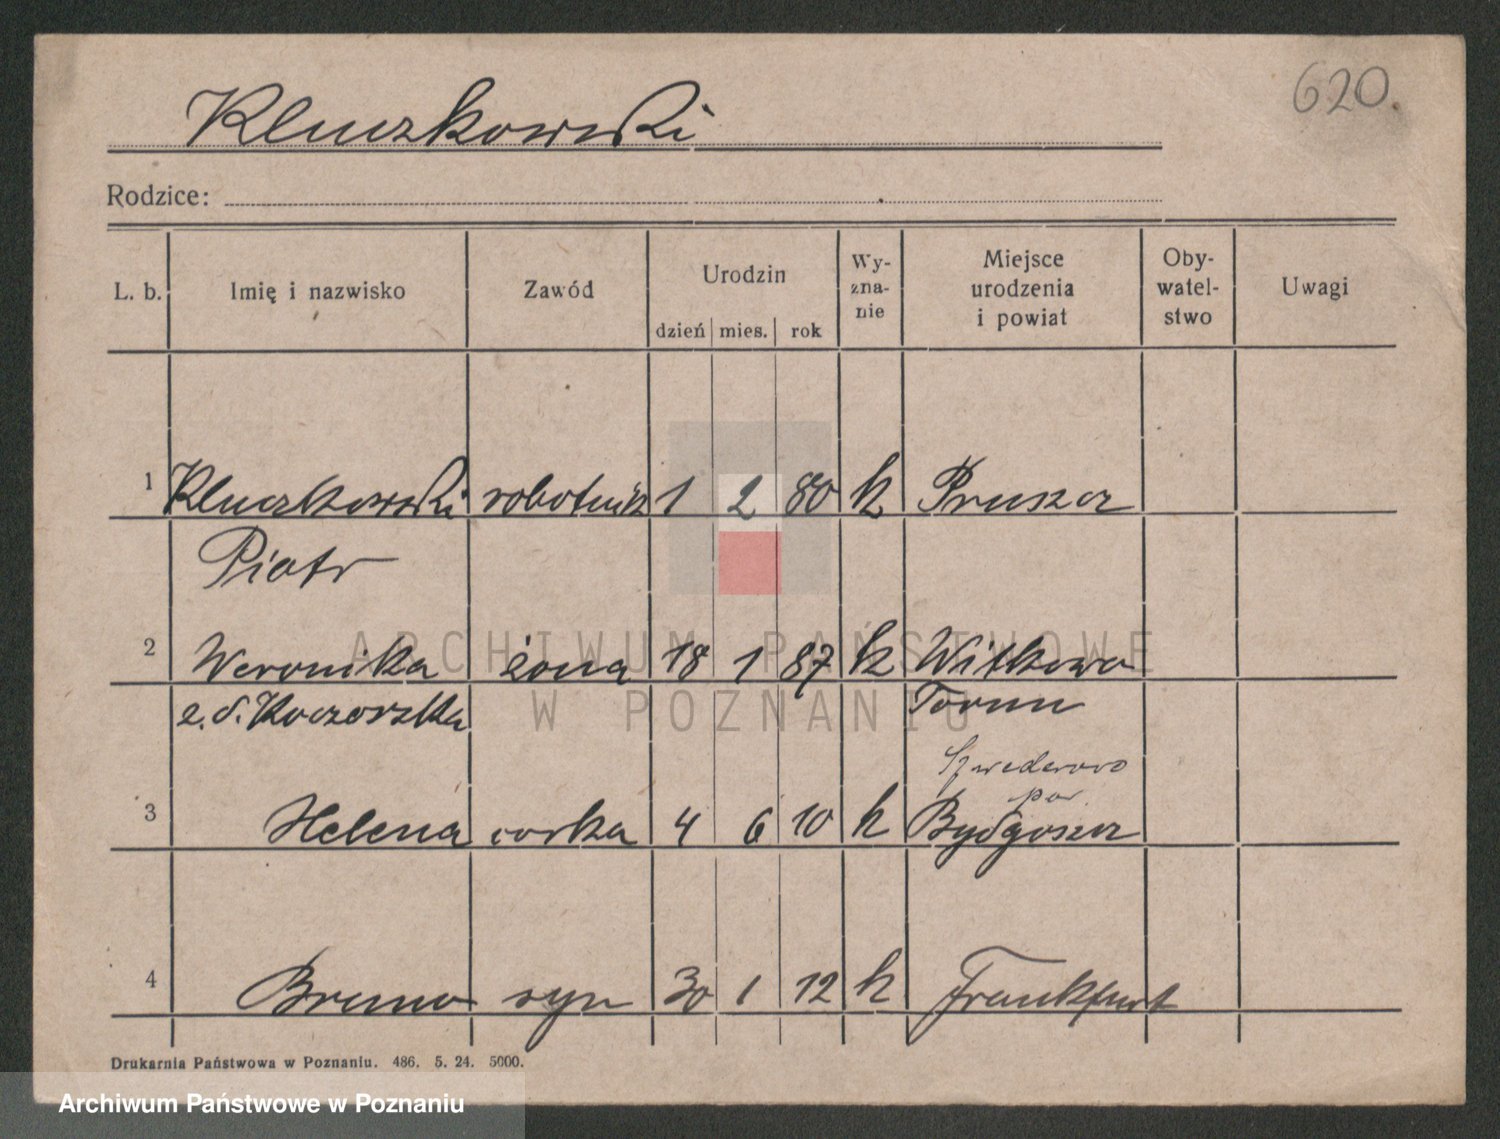 620.
Kluczkowski
Rodzice:
L. b. Imię i nazwisko Zawód Urodzin dzień mies. rok Wy-zna-nie Miejsce urodzenia i powiat Oby-watel-stwo Uwagi
1 Kluczkowski robotnik 1 2 80 k Pruszcz
Piotr
2 Weronika żona 18 1 87 k Witkowo
z. d. Toruń
Szwederowo
pow.
3 Helena corka 4 6 10 k Bydgoszcz
4 Bruno syn 30 1 12 k Frankfurt
Drukarnia Państwowa w Poznaniu. 486. 5. 24. 5000.
ARCHIWUM PAŃSTWOWE
W POZNANIU
Archiwum Państwowe w Poznaniu